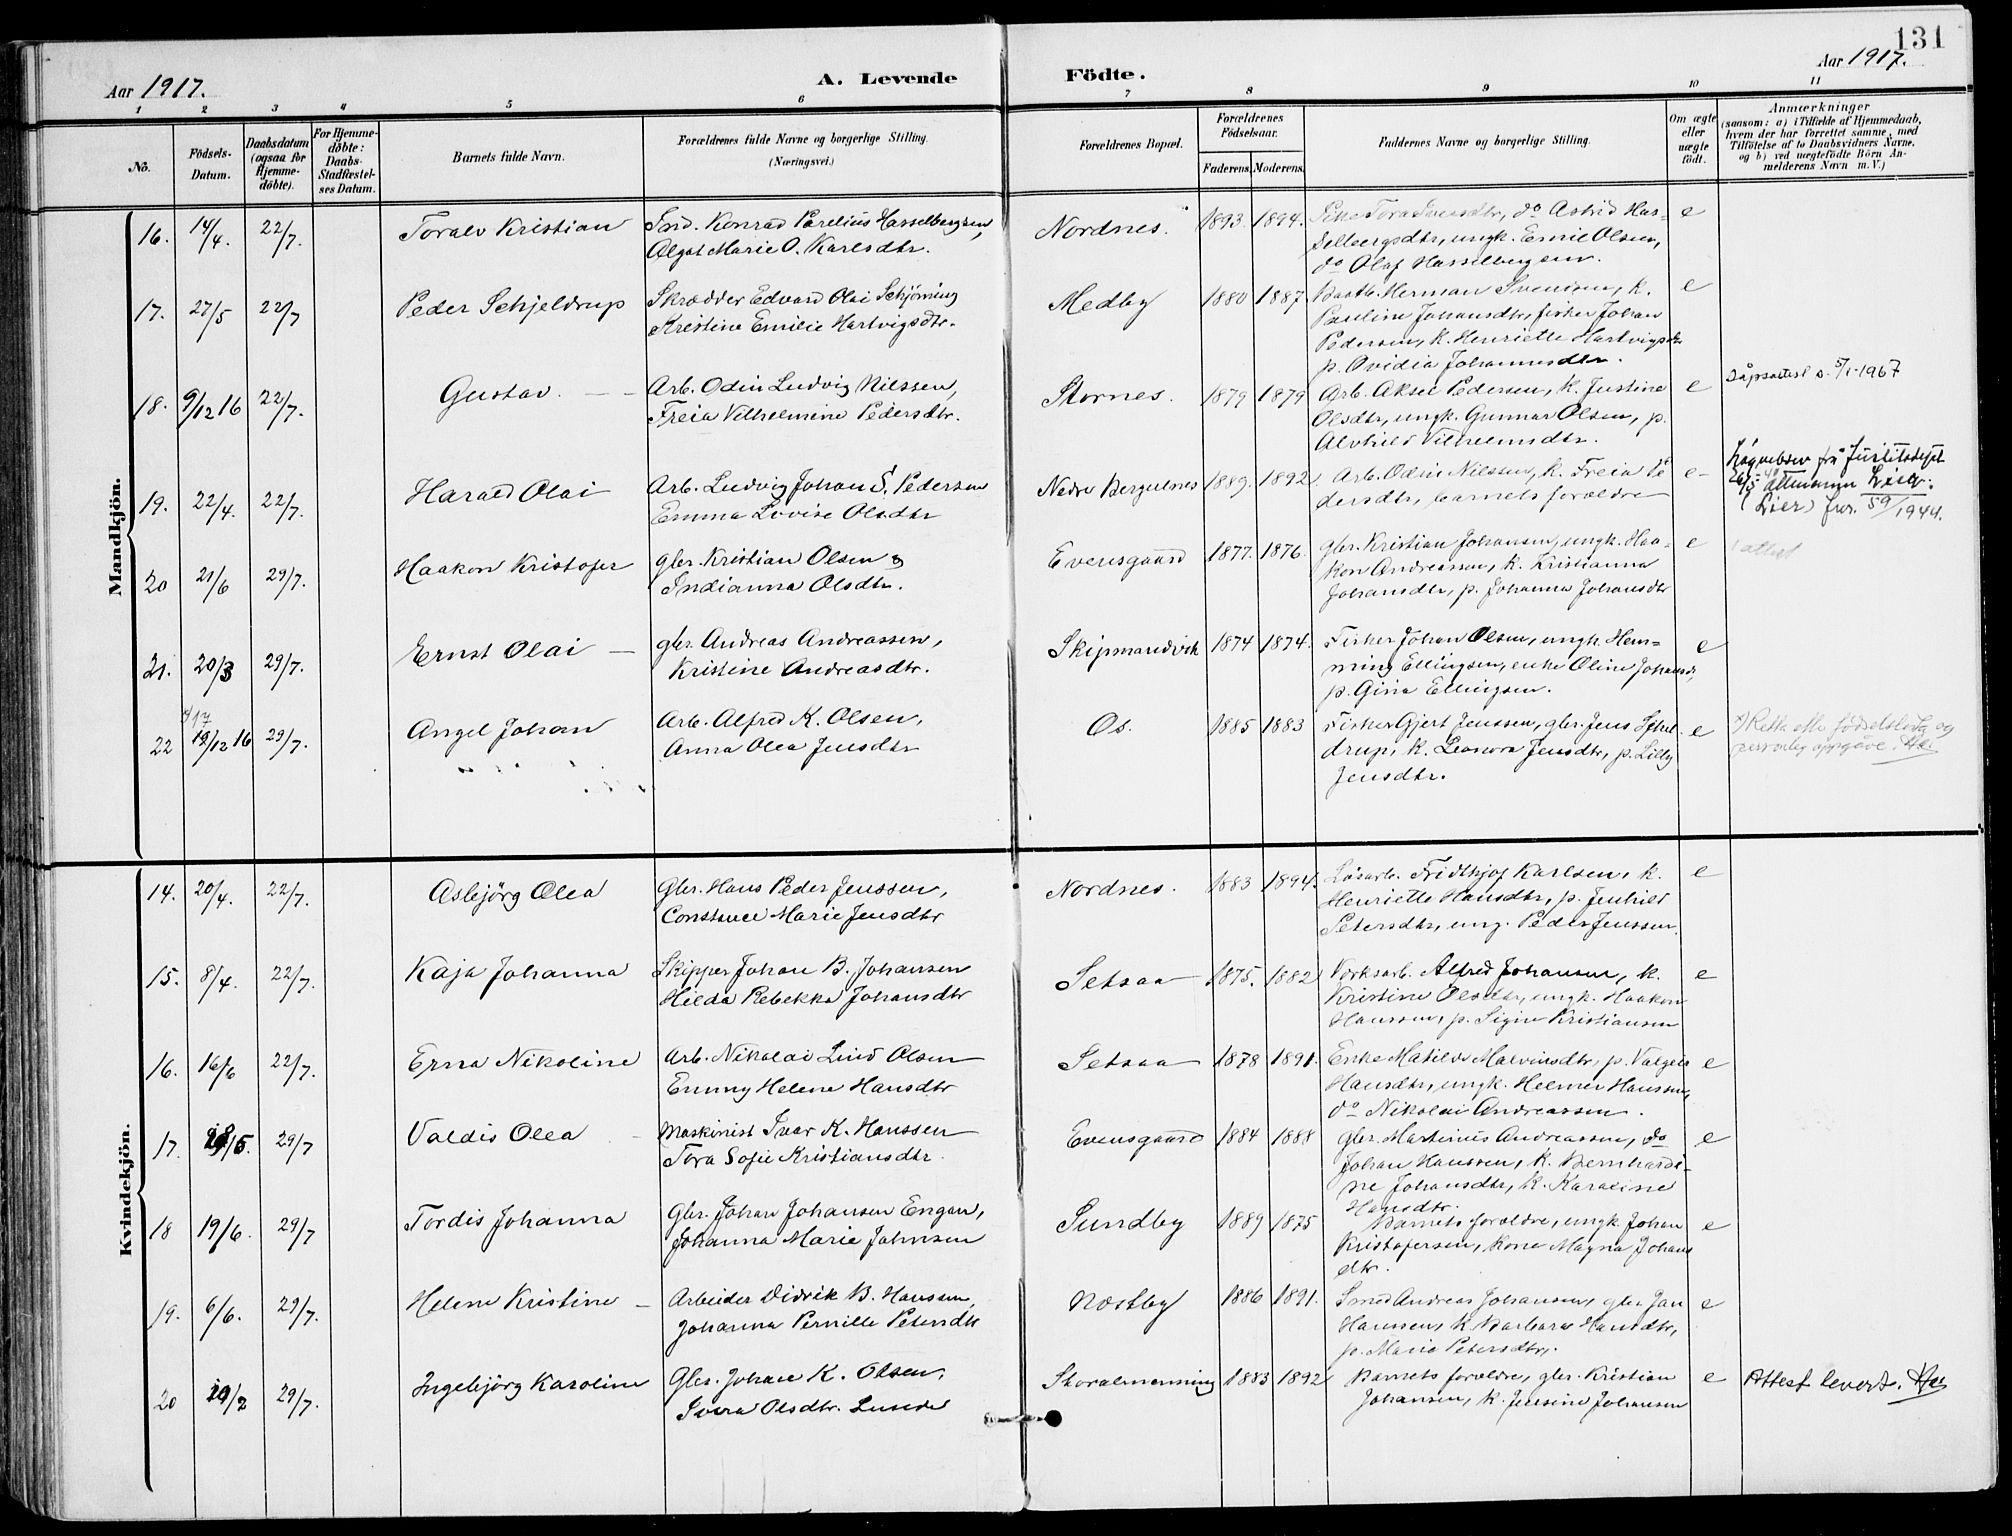 131
Aar 1917.
A. Levende
Födte.
Aar 1917.
1 2 3 4 5 6 7 8 9 10 11
No.
Födsels-Datum.
Daabsdatum (ogsaa for Hjemmedöbte).
For Hjemmedöbte: Daabs-Stadfæstelses Datum.
Barnets fulde Navn.
Forældrenes fulde Navne og borgerlige Stilling.
(Næringsvei.)
Forældrenes Bopæl.
Forældrenes Födselsaar.
Faderens. Moderens.
Faddernes Navne og borgerlige Stilling.
Om ægte eller uægte födt.
Anmærkninger
(saasom: a) i Tilfælde af Hjemmedaab, hvem der har forrettet samme, med Tilföielse af to Daabsvidners Navne, og b) ved uægtefödte Börn Anmelderens Navn m. V.)
Mandkjön.
16. 14/4. 22/7. Toralv Kristian
Ind. Konrad Parelius Hasselbergsen,
Algot Marie O. Karlsdtr.
Nordnes. 1893. 1894.
Pike Tora Svensdtr, do Astrid Has-
selbergsdtr, ungk. Emil Olsen,
do Olaf Hasselbergsen.
e
17. 27/5 22/7 Peder Schjeldrup
Skrædder Edvard Olai Schjöning
Kristine Emilie Hartvigsdtr.
Medby 1880 1887
Herman Svensen, k.
Pauline Johansdtr, fisker Johan
Pedersen, k. Henriette Hartvigsdtr
p. Ovidia Johannesdtr.
e
18. 9/12 16 22/7. Gustav.
Arb. Odin Ludvig Nilssen,
Freia Vilhelmine Pedersdtr.
Stornes. 1879 1879
Arb. Aksel Pedersen, k. Justine
Olsdtr, ungk. Gunnar Olsen, p.
Alvhild Vilhelmsdtr.
e
Dåpsattest s. 5/1-1967
19. 22/4. 22/7. Harald Olai
Arb. Ludvig Johan S. Pedersen
Emma Lovise Olsdtr
Nedre Bergulnes 1889. 1892
Arb. Odin Nilssen, k. Freia Pe
dersdtr, barnets forældre
e
fra Justitsdept
1944.
20 21/6 29/7. Haakon Kristofer
gbr. Kristian Olsen og
Indianna Olsdtr.
Evensgaard 1877. 1876.
gbr. Kristian Johansen, ungk. Haa-
kon Andreassen, k. Kristianna
Johansdtr, p. Johanna Johansdtr
e
attest
21. 20/3 29/7. Ernst Olai
gbr. Andreas Andreassen,
Kristine Andreasdtr.
Skipmandvik 1874 1874.
Fisker Johan Olsen, ungk. Hem-
ming Ellingsen, enke Oline Johansdt,
p. Gina Ellingsen.
e
22 12/12 16 29/7. Angel Johan
Arb. Alfred K. Olsen,
Anna Olea Jensdtr
Os. 1885 1883
Fisker Gjert Jenssen, gbr. Jens Schel-
drup, k. Leonora Jensdtr, p. Lilly
Jensdtr.
e
personleg oppgave.
Kvindekjön.
14. 20/4. 22/7. Asbjörg Olea
Gbr. Hans Peder Jenssen,
Constance Marie Jensdtr
Nordnes. 1883 1894.
Lösarb. Fridthjof Karlsen, k.
Henriette Hansdtr, p. Jenhild
Petersdtr, ung. Peder Jenssen.
e
15. 8/4. 22/7. Kaja Johanna
Skipper Johan B. Johansen
Hilda Rebekka Johansdtr
Setsaa 1875. 1882
Verksarb. Alfred Johansen, k.
Kristine Olsdtr, ungk. Haakon
Hanssen, p. Signe Kristiansen
e
16. 16/6 22/7. Erna Nikoline
Arb. Nikolai Lind Olsen
Emmy Helene Hansdtr
Setsaa 1878 1891.
Enke Matilde Malvinsdtr, p. Valgerd
Hansdtr, ungk. Helmer Hanssen,
do Nikolai Andreassen.
e
17. 29/7 Valdis Olea
Maskinist Ivar K. Hanssen
Tora Sofie Kristiansdtr.
Evensgaard 1884 1888
gbr. Martinus Andreassen, do
Johan Hanssen, k. Bernhardi-
ne Johansdtr, k. Karoline
Hansdtr.
e
18 19/6. 29/7 Tordis Johanna
Gbr. Johan Johansen Engan,
Johanna Marie Johnsen
Sundby 1889 1875
Barnets forældre, ungk. Johan
Kristofersen, kone Magna Johans
dtr.
e
19. 6/6. 29/7. Helene Kristine
Arbeider Didrik B. Hanssen,
Johanna Pernille Petersdtr
Næstby 1886 1891.
Smed Andreas Johansen, gbr. Jan
Hanssen, k. Barbara Hansdtr,
p. Marie Petersdtr.
e
20 29/7. Ingebjörg Karoline
Gbr. Johan K. Olsen,
Ivera Olsdtr. Lunde
Storalmenning 1883 1892
Barnets forældre, gbr. Kristian
Johansen, k. Jensine Johansen
e
Attest levert.